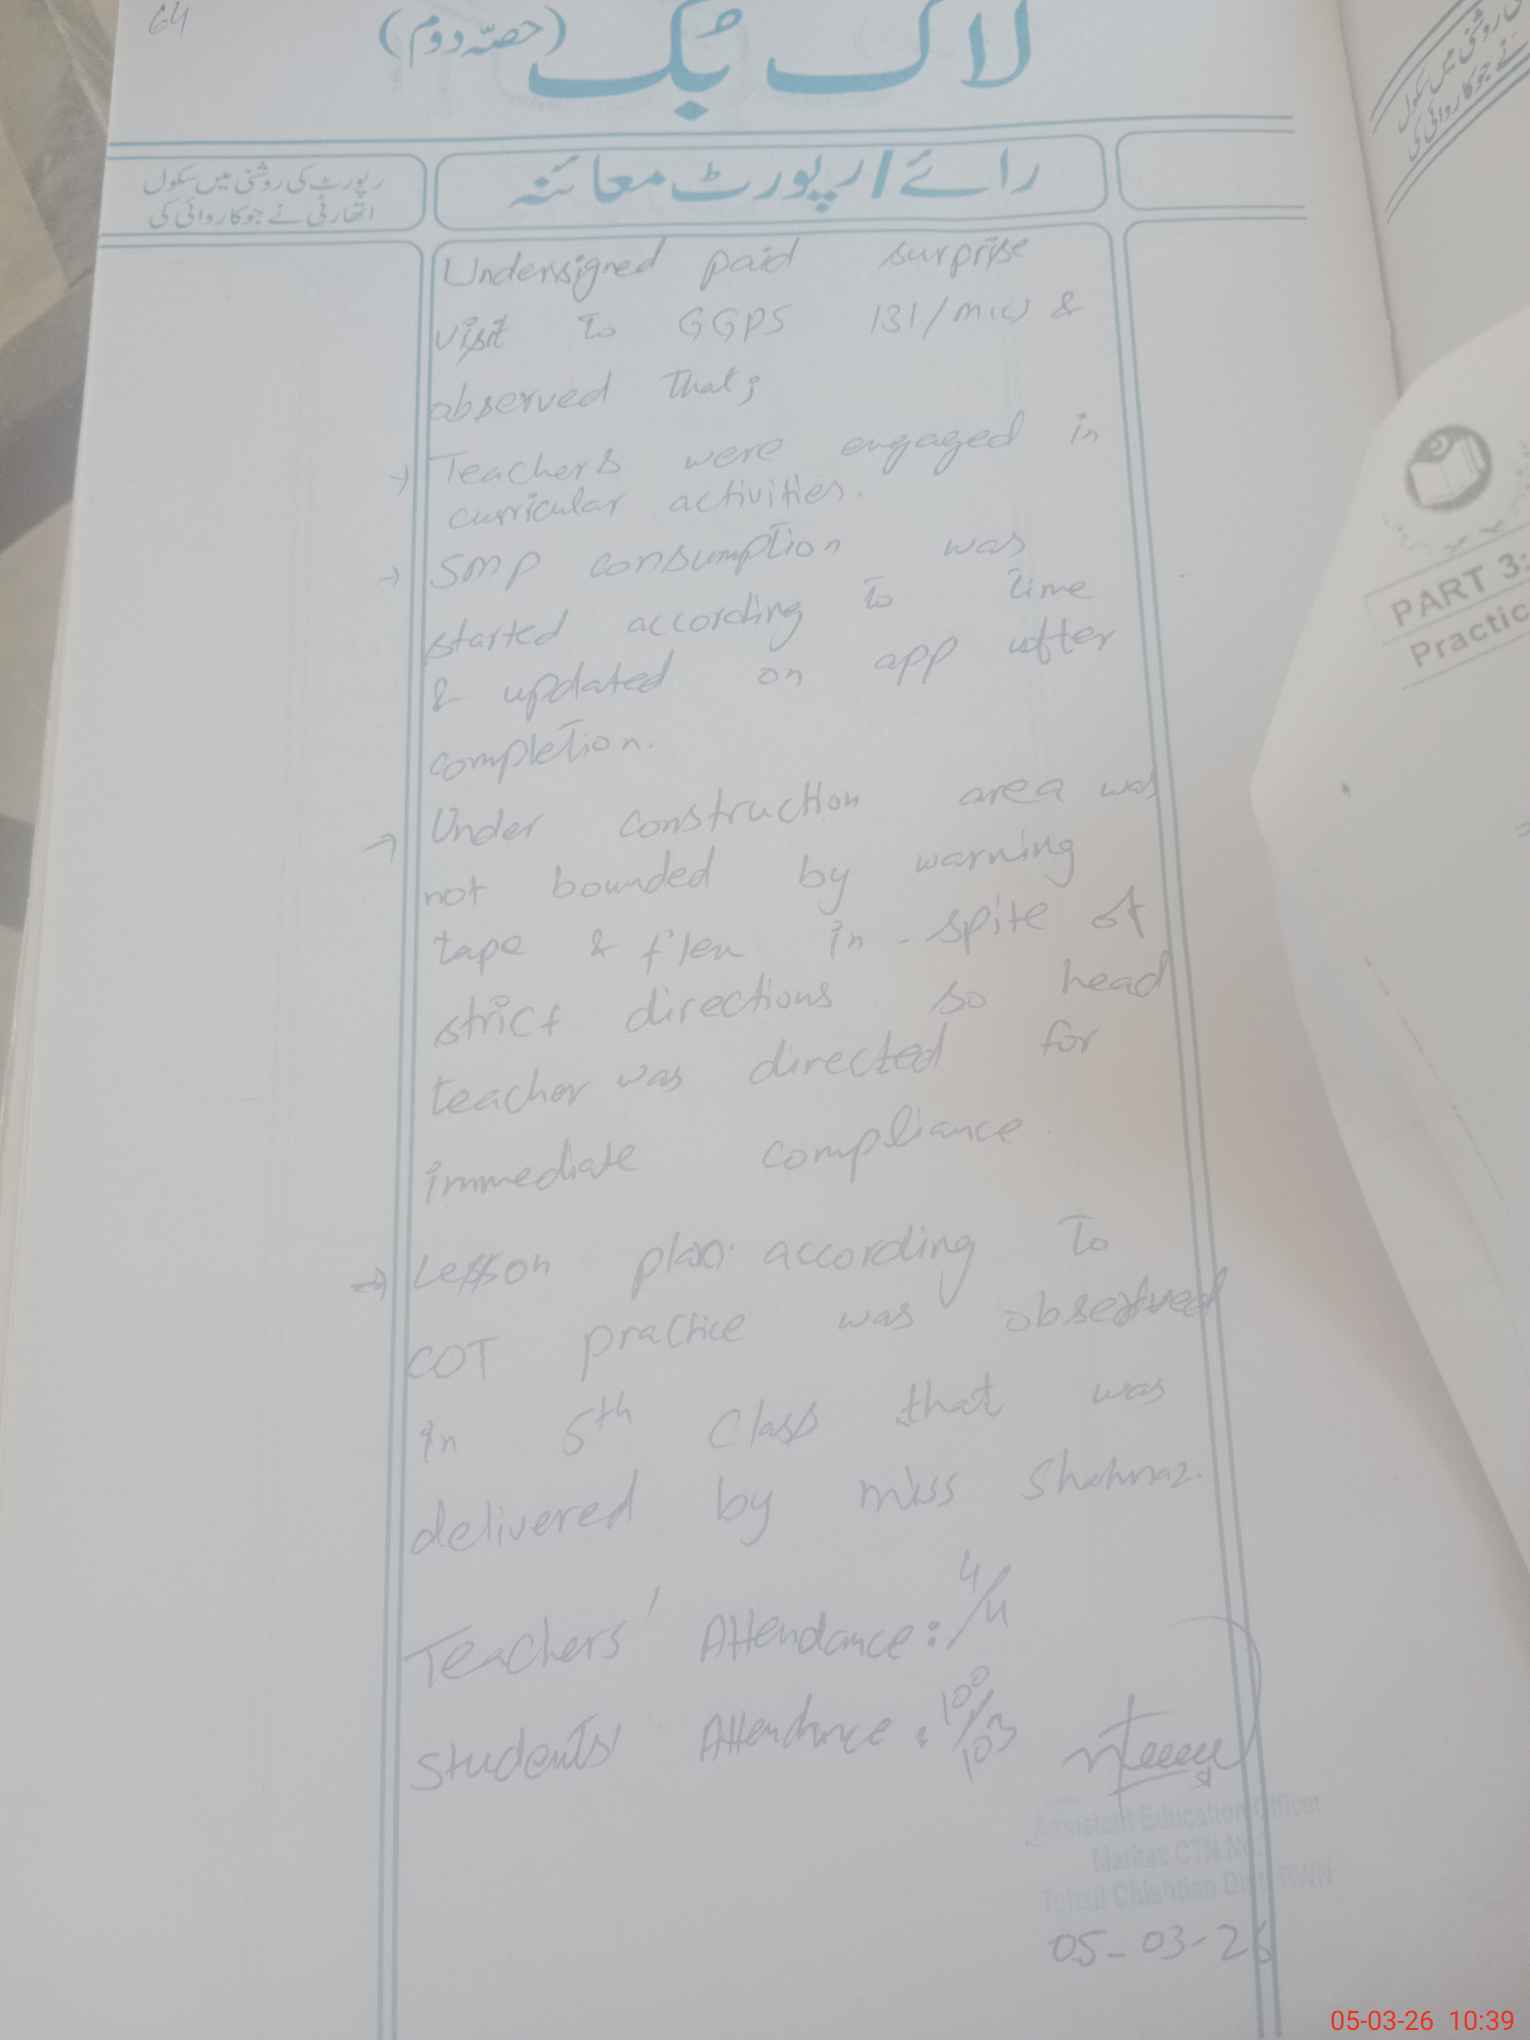 64
لاگ بُک (حصّہ دوم)
رائے/رپورٹ معائنہ
رپورٹ کی روشنی میں سکول
اتھارٹی نے جو کاروائی کی
Undersigned paid surprise
visit to GGPS 131/
observed that;
→ Teachers were engaged in
curricular activities.
→ SMP consumption was
started according to time
& updated on app after
completion.
→ Under construction area was
not bounded by warning
tape & flex in-spite of
strict directions so head
teacher was directed for
immediate compliance.
→ Lesson plan according to
COT practice was observed
in 5th class that was
delivered by miss Shahnaz.
Teachers' Attendance: 4/4
Students' Attendance: 100/103
Assistant Education Officer
Markaz CTN
Tehsil Chishtian Distt BWN
05-03-26
PART 3:
Practic
05-03-26 10:39